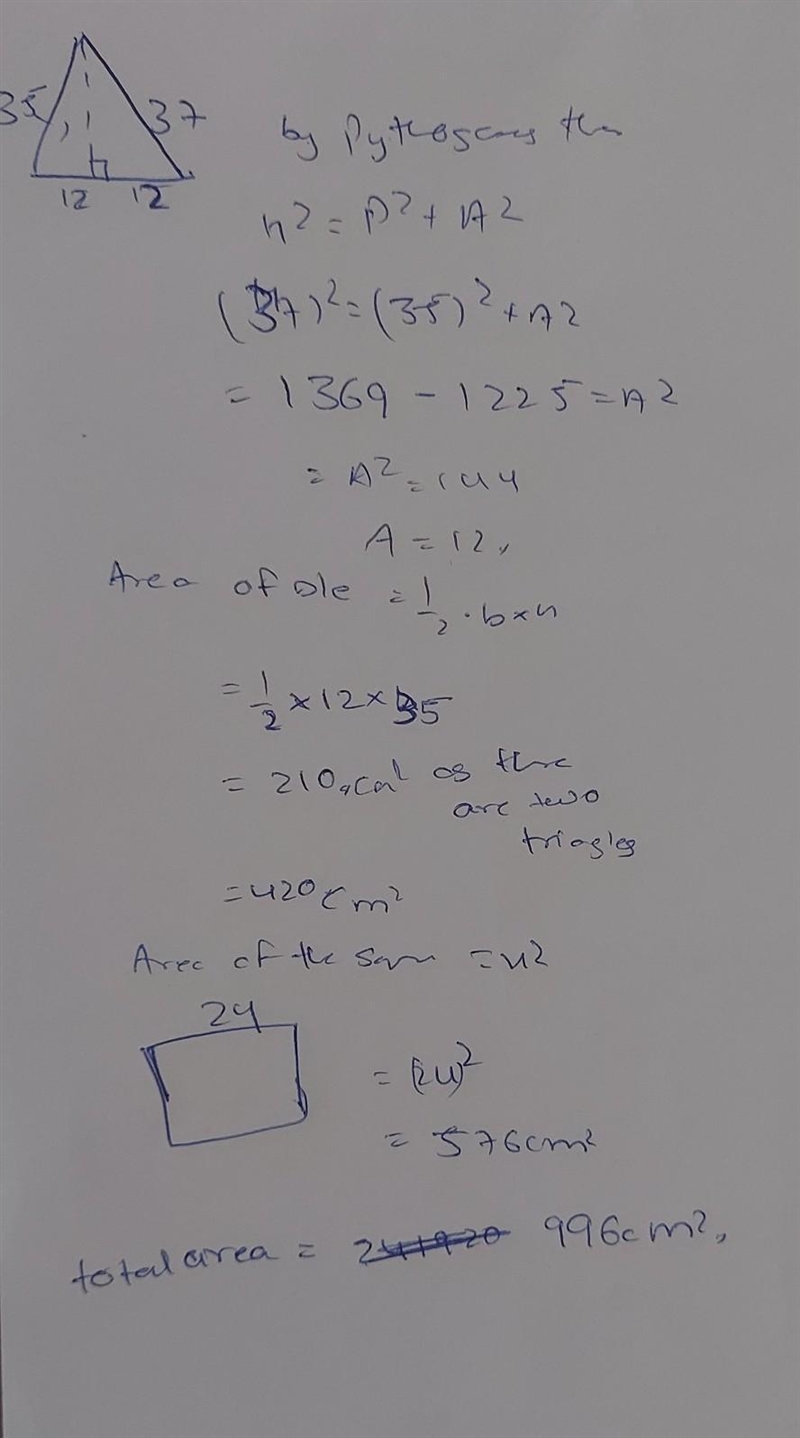 35
37
12 12
by Pythogoras thm
h² = P² + A²
(37)² = (35)² + A²
= 1369 - 1225 = A²
= A² = 144
A = 12,
Area of Δle = 1/2 · b × h
= 1/2 × 12 × 35
= 210 cm² as there
are two
triagles
= 420 cm²
Area of the = x²
24
= (24)²
= 576cm²
total area = 996cm²,